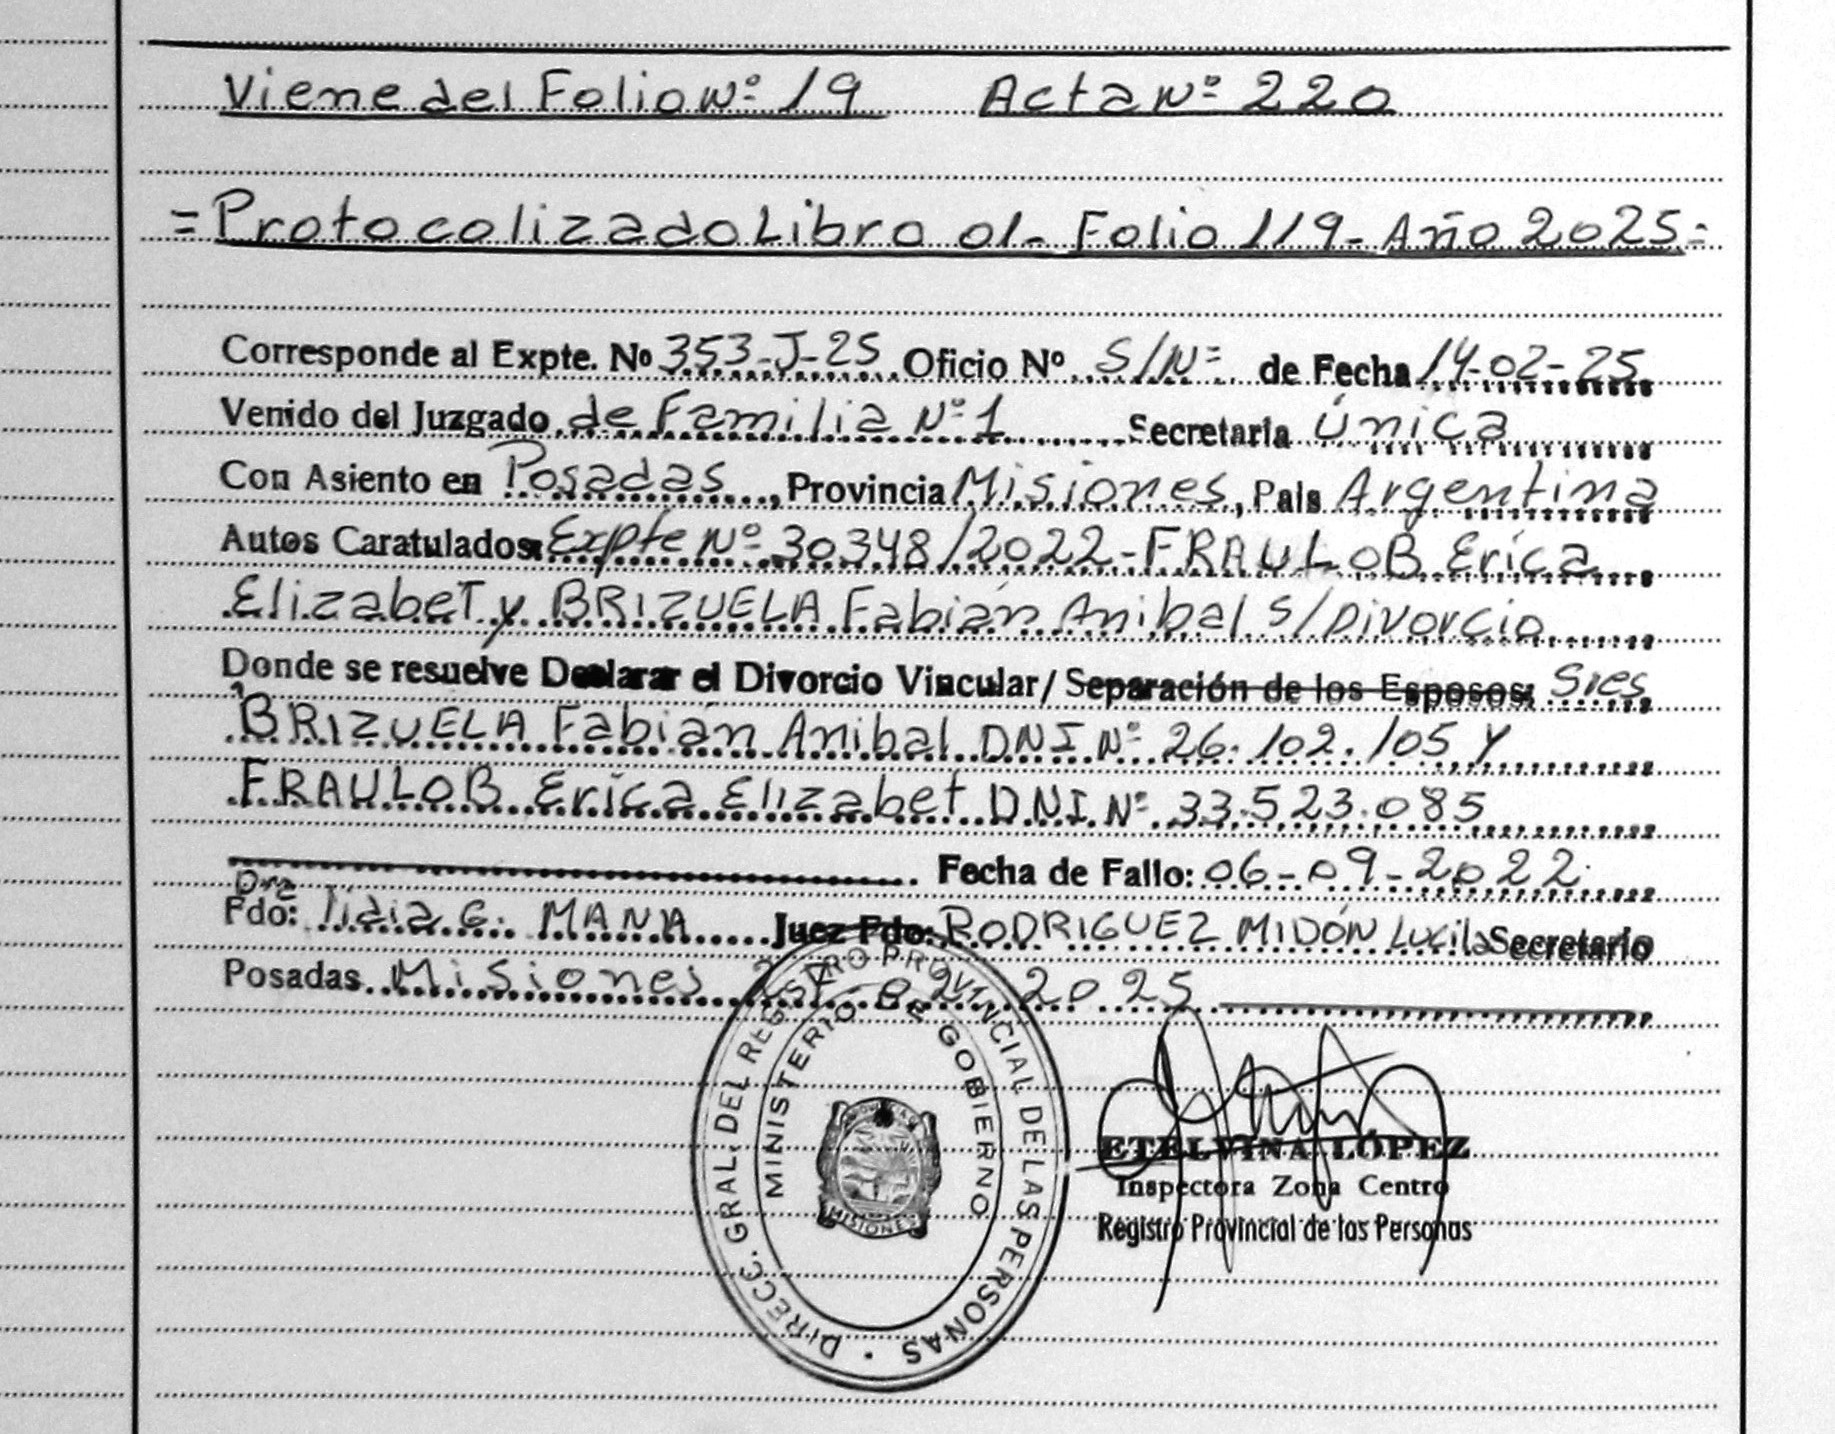 Viene del Folio Nº 19 Acta Nº 220
= Protocolizado Libro 01- Folio 119- Año 2025=
Corresponde al Expte. Nº 353-J-25 Oficio Nº S/Nº de Fecha 14-02-25
Venido del Juzgado de Familia Nº 1 Secretaria Única
Con Asiento en Posadas, Provincia Misiones, Pais Argentina
Autos Caratulados: Expte Nº 30348/2022-FRAULOB Erica
Elizabet y BRIZUELA Fabián Anibal S/Divorcio
Donde se resuelve Declarar el Divorcio Vincular/ Separación de los Esposos: Sres
BRIZUELA Fabián Anibal DNI Nº 26.102.105 Y
FRAULOB Erica Elizabet DNI Nº 33.523.085
Fecha de Fallo: 06-09-2022
Dra
Fdo: G. MANA Juez Fdo: RODRIGUEZ MIDÓN Lucila Secretario
Posadas Misiones 02 2025
DIRECC. GRAL. DEL REGISTRO PROVINCIAL DE LAS PERSONAS
MINISTERIO DE GOBIERNO
MISIONES
ETELVINA LÓPEZ
Inspectora Zona Centro
Registro Provincial de las Personas